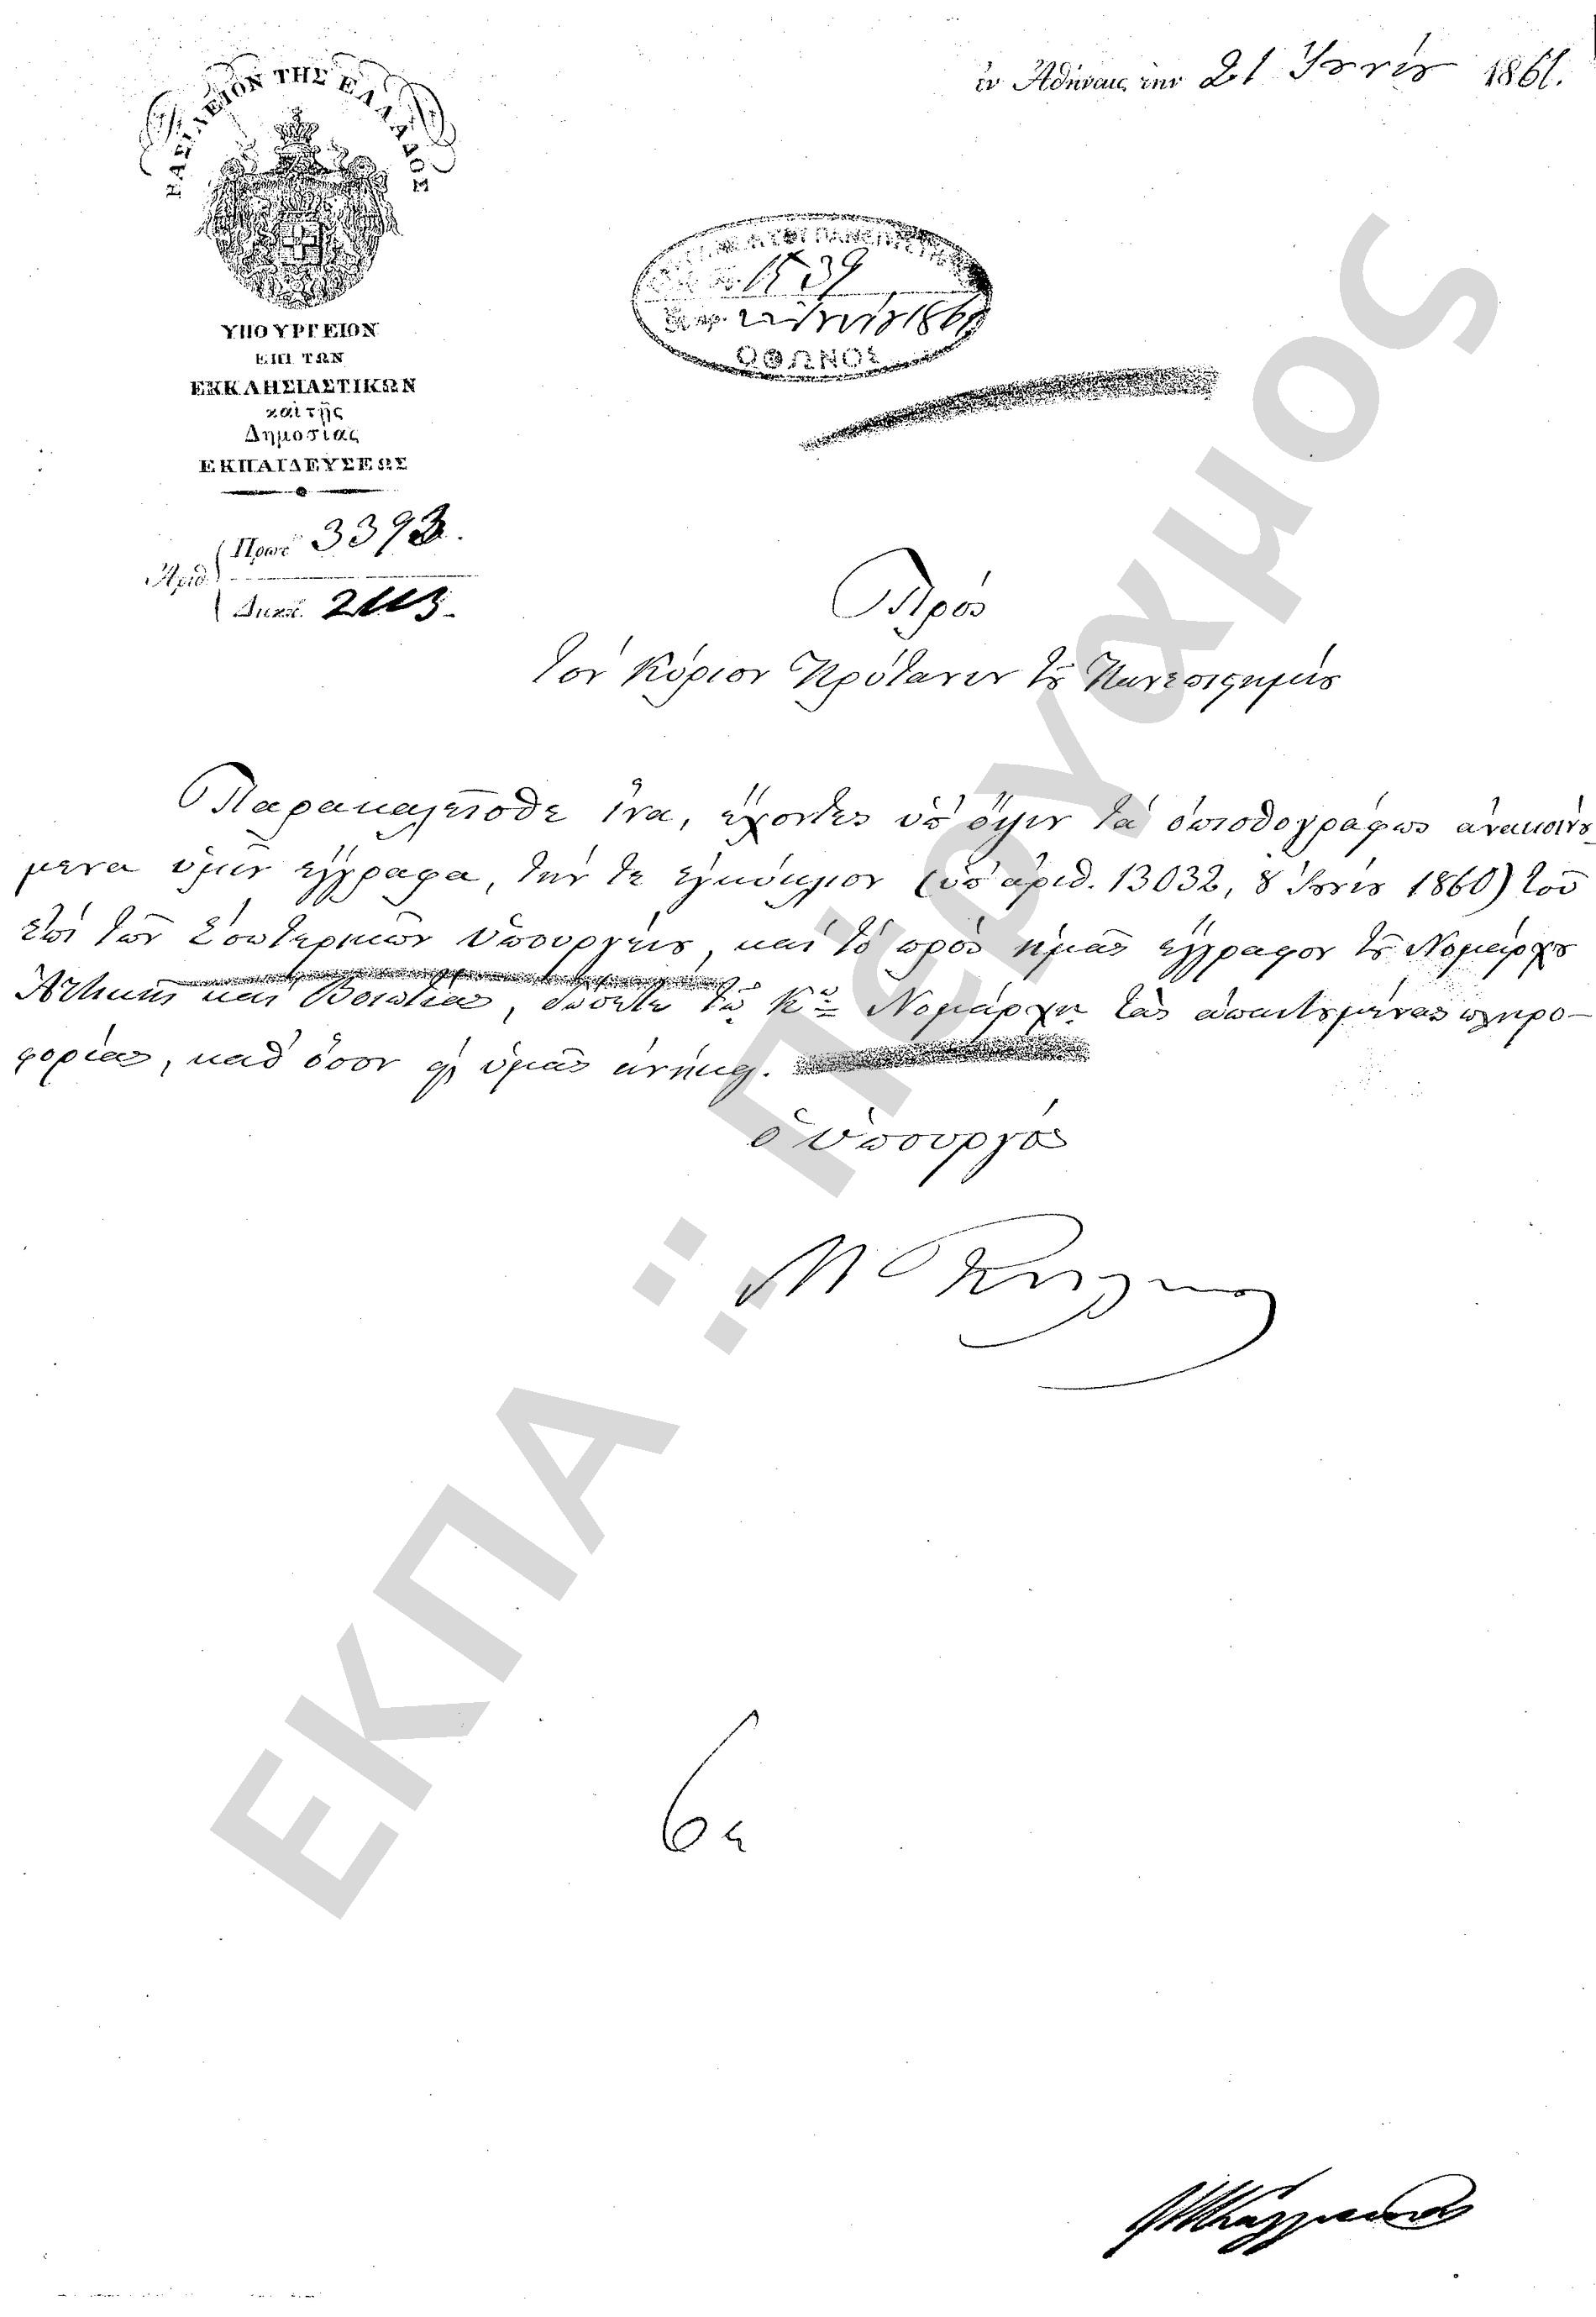 ἐν Ἀθήναις τὴν 21 Ἰουνίου 1861.
ΒΑΣΙΛΕΙΟΝ ΤΗΣ ΕΛΛΑΔΟΣ
ΥΠΟΥΡΓΕΙΟΝ
ΕΠΙ ΤΩΝ
ΕΚΚΛΗΣΙΑΣΤΙΚΩΝ
καὶ τῆς
Δημοσίας
ΕΚΠΑΙΔΕΥΣΕΩΣ
1539
22 Ἰουνίου 1861
ΟΘΩΝΟΣ
Ἀριθ. Πρωτ. 3393.
Διεκπ.
Πρὸς
τὸν Κύριον Πρύτανιν τοῦ Πανεπιστημίου
Παρακαλεῖσθε ἵνα, ἔχοντες ὑπ' ὄψιν τὰ ὀπισθογράφως ἀνακοινού-
μενα ὑμῖν ἔγγραφα, τήν τε ἐγκύκλιον (ὑπ' ἀριθ. 13032, 8 Ἰουνίου 1860) τοῦ
ἐπὶ τῶν Ἐσωτερικῶν Ὑπουργείου, καὶ τὸ πρὸς ἡμᾶς ἔγγραφον τοῦ Νομάρχου
Ἀττικῆς καὶ Βοιωτίας, δώσητε τῷ Κῳ Νομάρχῃ τὰς ἀπαιτουμένας πληρο-
φορίας, καθ' ὅσον ἐφ' ὑμᾶς ἀνήκει.
ὁ Ὑπουργὸς
ΕΚΠΑ :: Πέργαμος